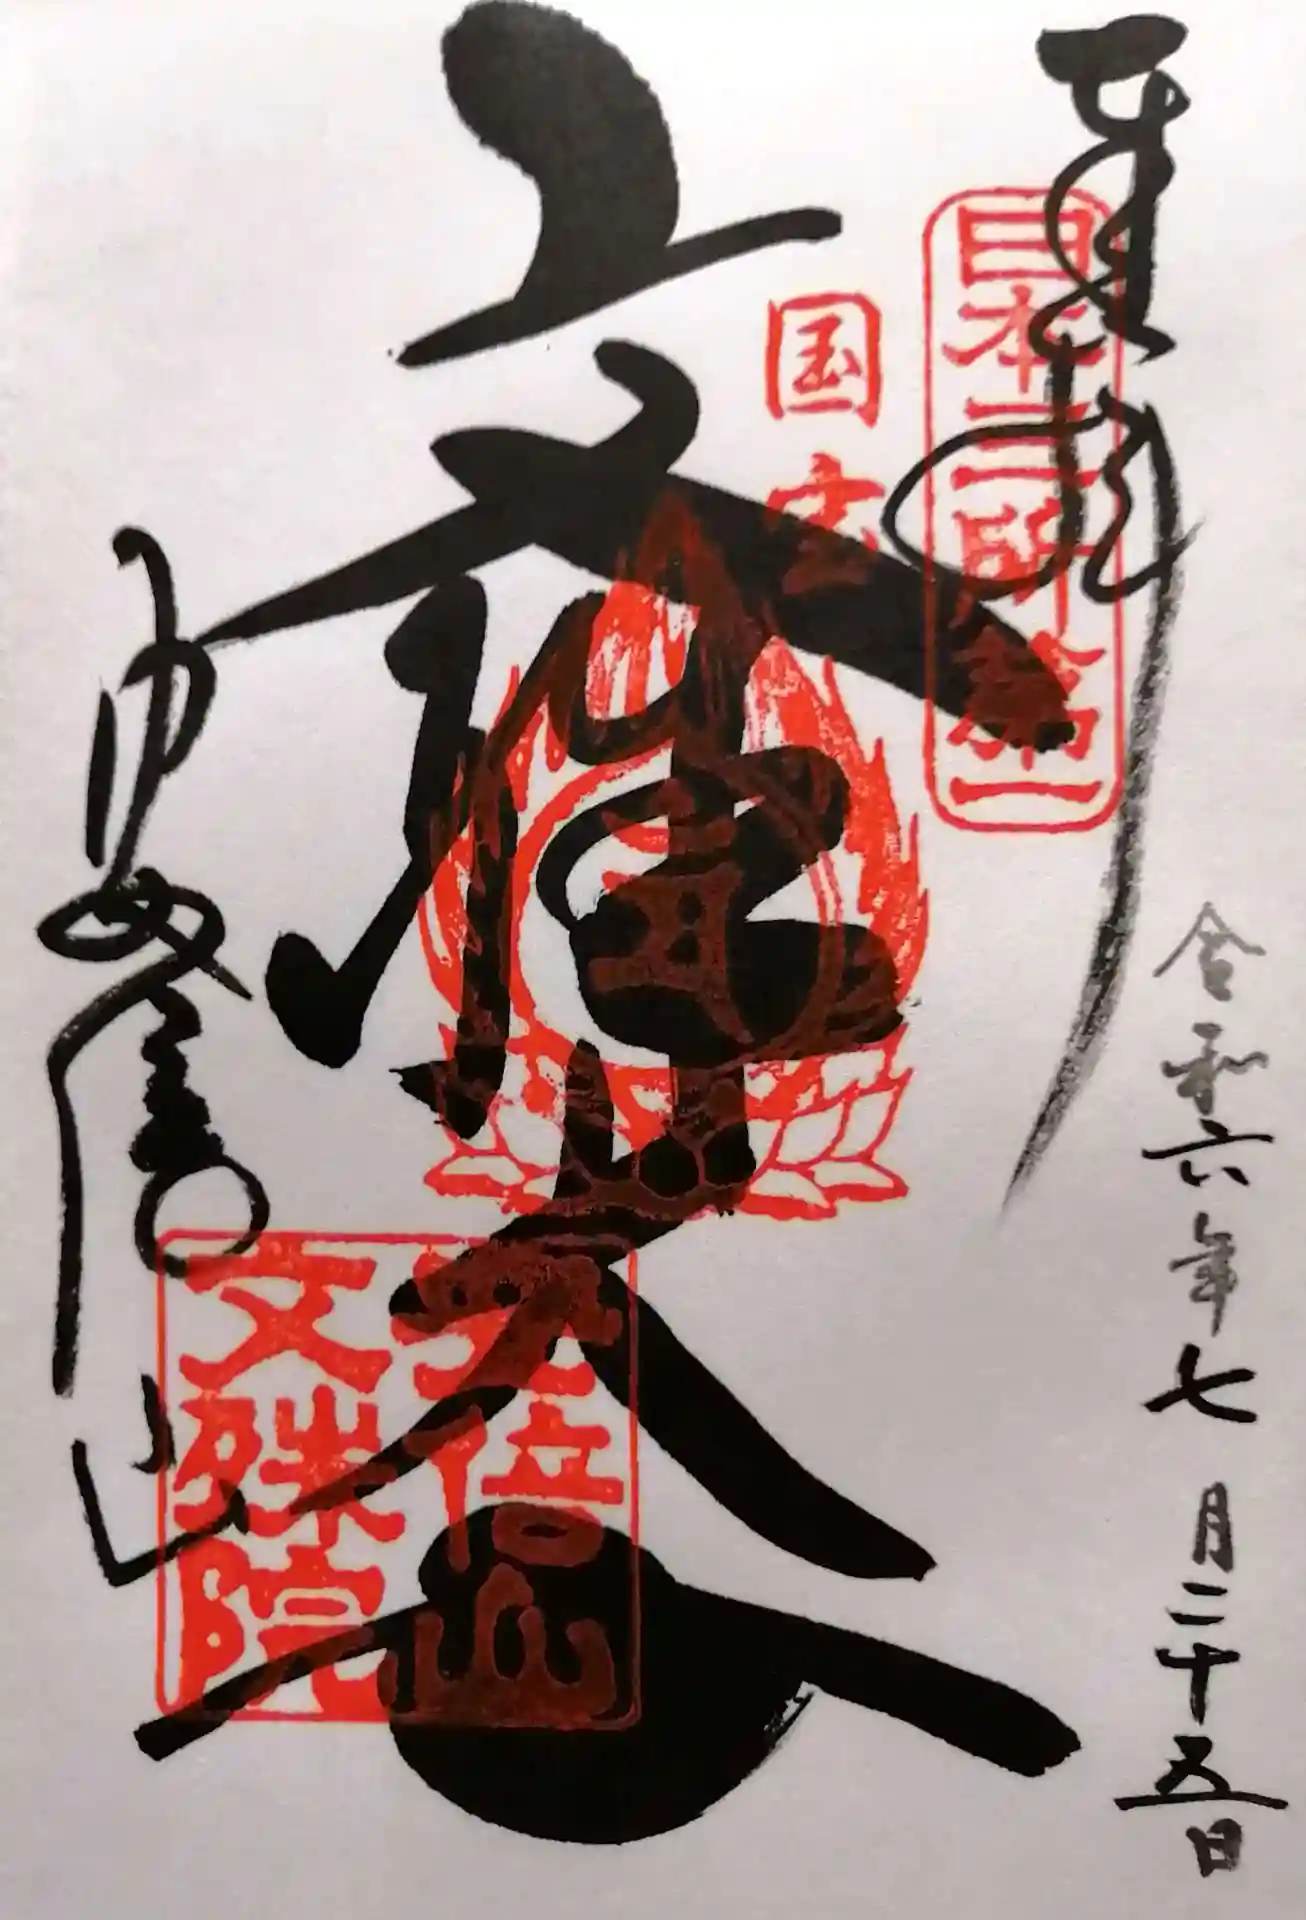 奉拝
日本三所第一
国宝
令和六年七月二十五日
安倍山
文殊院
安倍山